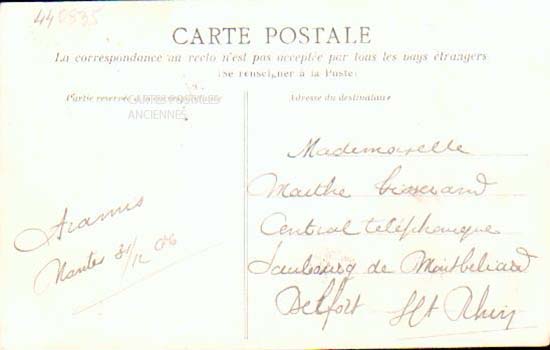 44 0835
CARTE POSTALE
La correspondance au recto n'est pas acceptée par tous les pays étrangers
(Se renseigner à la Poste)
Partie réservée à la correspondance
CARTES POSTALES
ANCIENNES
Adresse du destinataire
Aramis
Nantes 31/12 06
Mademoiselle
Marthe
Central téléphonique
Faubourg de Montbéliard
Belfort Ht Rhin